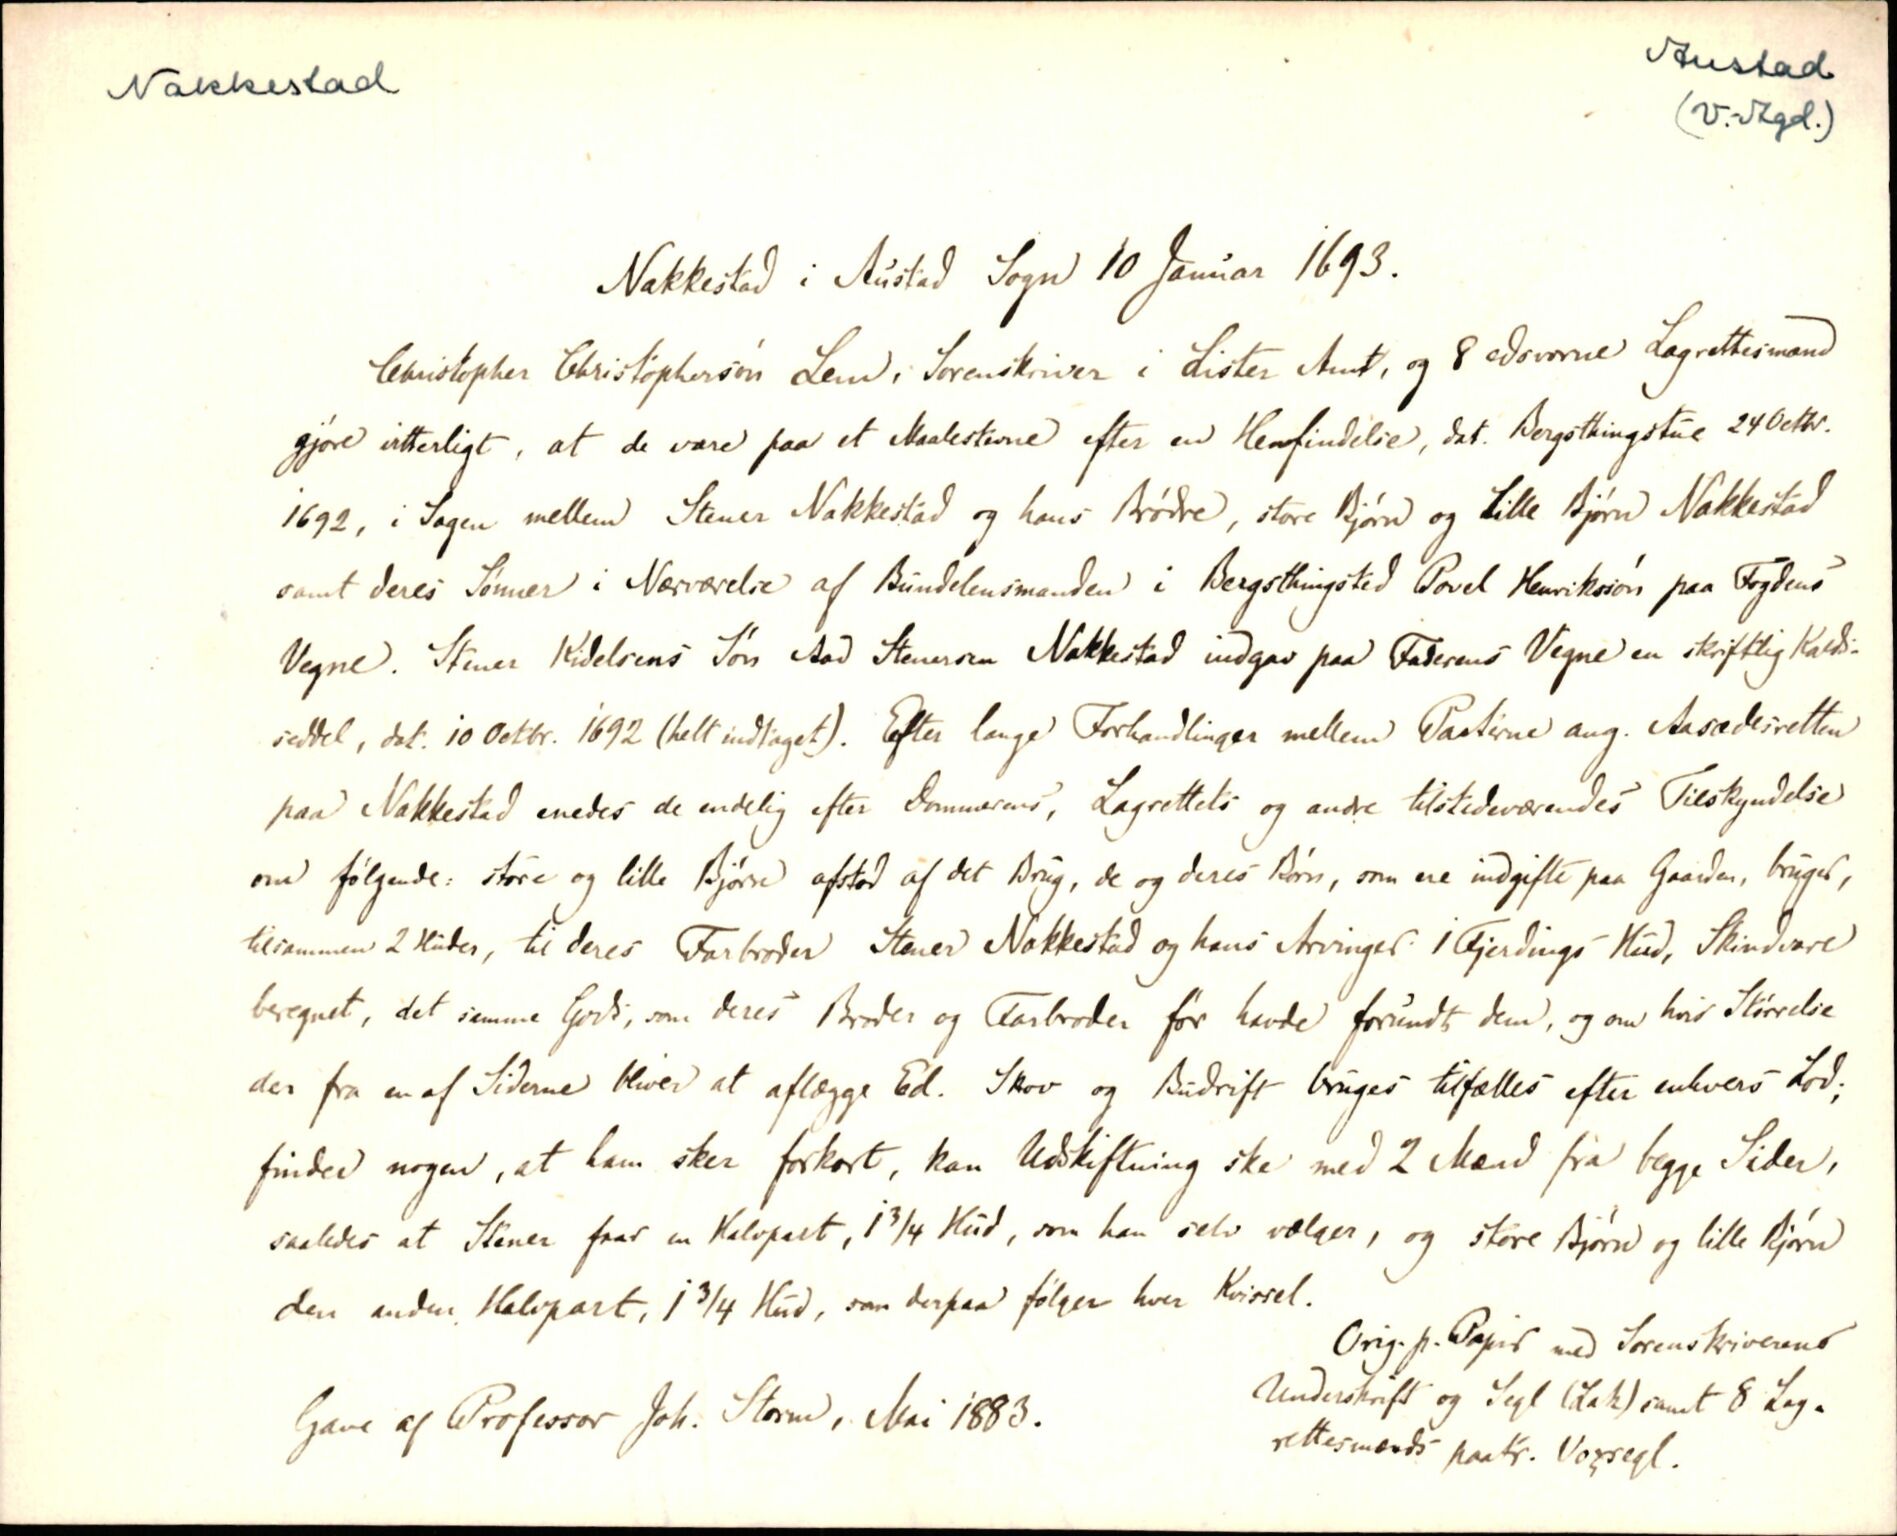 Nakkestad
Austad
(V.-Agd.)
Nakkestad i Austad Sogn 10 Januar 1693.
Christopher Christophersön Lem, Sorenskriver i Lister Amt, og 8 edsvorne Lagrettesmænd
gjöre vitterligt, at de vare paa et Maalestevne efter en Henfindelse, dat. Bergsthingstue 24 Octbr.
1692, i Sagen mellem Stener Nakkestad og hans Brödre, store Björn og lille Björn Nakkestad
samt deres Sönner i Nærværelse af Bundelensmanden i Bergsthingsted Povel Henrikssön paa Fogdens
Vegne. Stener Kidelsens Sön Aad Stenersen Nakkestad indgav paa Faderens Vegne en skriftlig Kalds-
seddel, dat. 10 Octbr. 1692 (helt indtaget). Efter lange Forhandlinger mellem Parterne ang. Aasædesretten
paa Nakkestad enedes de endelig efter Dommerens, Lagrettets og andre tilstedeværendes Tilskyndelse
om fölgende: store og lille Björn afstod af det Brug, de og deres Börn, som ere indgifte paa Gaarden, bruger,
tilsammen 2 Huder, til deres Farbroder Stener Nakkestad og hans Arvinger 1 Fjerdings Hud, Skindvare
beregnet, det samme Gods, som deres Broder og Farbroder för havde forundt dem, og om hvis Störrelse
der fra en af Siderne bliver at aflægge Ed. Skov og Budrift bruges tilfælles efter enhvers Lod;
finder nogen, at ham sker forkort, kan Udskiftning ske med 2 Mænd fra begge Sider,
saaledes at Stener faar en Halvpart, 1 3/4 Hud, som han selv vælger, og store Björn og lille Björn
den anden Halvpart, 1 3/4 Hud, som derpaa fölger hver Kvissel.
Orig. p. Papir med Sorenskriverens
Underskrift og Segl (Lak) samt 8 Lag-
rettesmænds paatr. Voxsegl.
Gave af Professor Joh. Storm, Mai 1883.